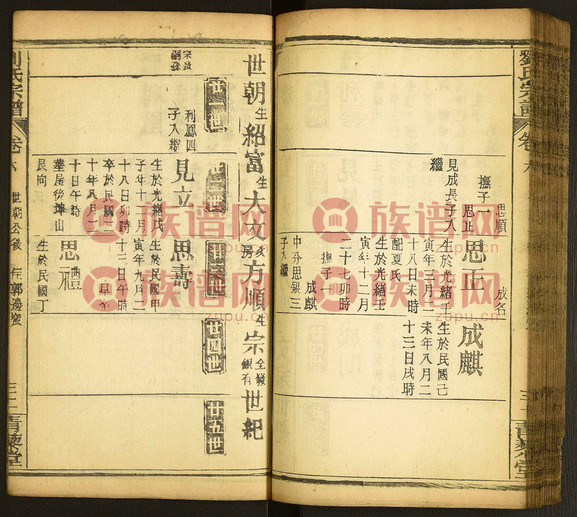 劉氏宗譜
卷六
三一
青藜堂
思順
成名
撫子一
思正
見成長子入
繼
思正
生於光緒壬
寅年三月二
十八日未時
配夏氏
生於光緒壬
寅年十二月
二十七卯時
撫子一
成麒
中芬思榘三
子入繼
成麒
生於民國己
未年八月二
十三日戌時
世朝生紹富生大文次房方順生宗世紀
廿一世
廿二世
廿三世
廿四世
廿五世
利鳳四
子入繼
見立
生於光緒戊
子年月二
十八日卯時
卒於民國
十年八月一
十日午時
葬屋後埠山
艮向
思壽
生於民國甲
寅年九月二
十三日午時
思禮
生於民國丁
劉氏宗譜
卷六
世朝公後
三二
青藜堂
族谱网
族谱网
族谱网
族谱网